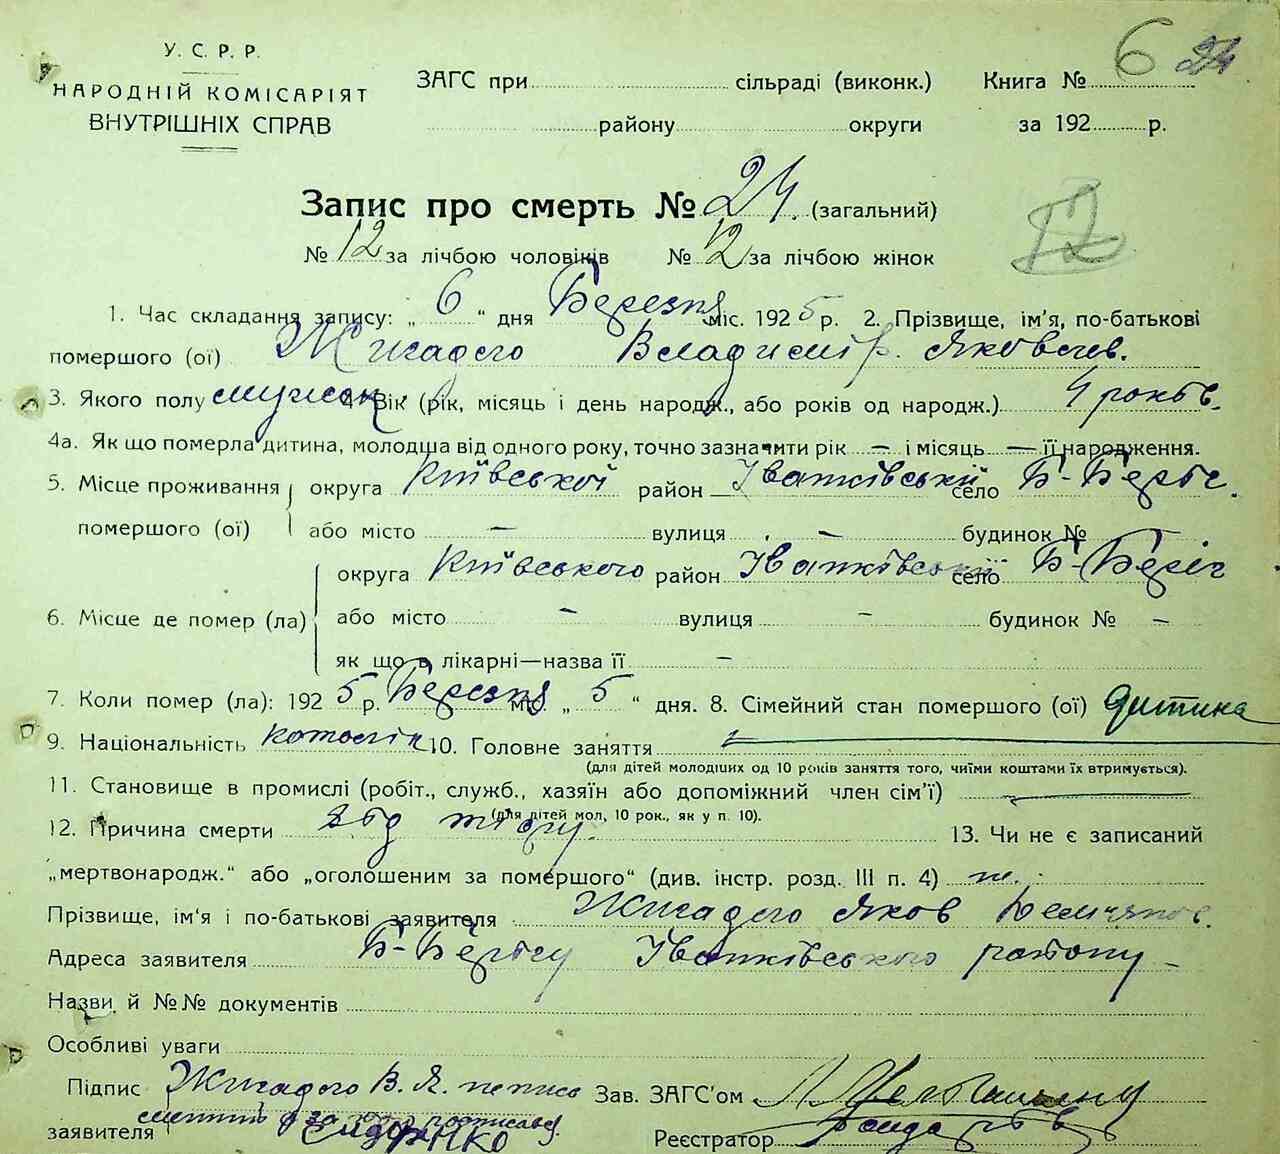 У. С. Р. Р.
НАРОДНІЙ КОМІСАРІЯТ
ВНУТРІШНІХ СПРАВ
ЗАГС при сільраді (виконк.)
району округи
Книга № 6 24
за 192 р.
Запис про смерть № 24. (загальний)
№ 12 за лічбою чоловіків № 12 за лічбою жінок
1. Час складання запису: „ 6 “ дня Березня міс. 192 5 р. 2. Прізвище, ім'я, по-батькові
помершого (ої) Жигадого Владимір. Яковлев.
3. Якого полу мужск. 4. Вік (рік, місяць і день народж., або років од народж.) 4 років.
4а. Як що померла дитина, молодша від одного року, точно зазначити рік — і місяць — її народження.
5. Місце проживання помершого (ої) округа Київської район Іванківський село Б-Берєг.
або місто — вулиця — будинок №
6. Місце де помер (ла) округа Київського район Іванківський село Б-Беріг
або місто — вулиця — будинок № —
як що в лікарні—назва її —
7. Коли помер (ла): 192 5 р. Березня міс. „ 5 “ дня. 8. Сімейний стан помершого (ої) дитина
9. Національність католик 10. Головне заняття —
(для дітей молодших од 10 років заняття того, чиїми коштами їх втримується).
11. Становище в промислі (робіт., служб., хазяїн або допоміжний член сім'ї) —
(для дітей мол, 10 рок., як у п. 10).
12. Причина смерти від 13. Чи не є записаний
„мертвонародж.“ або „оголошеним за помершого“ (див. інстр. розд. III п. 4) не.
Прізвище, ім'я і по-батькові заявителя Жигадого Яков
Адреса заявителя Б-Берєгу Іванківського району —
Назви й №№ документів
Особливі уваги
Підпис заявителя Жигадого В. Я. за його
Сидорнко
Зав. ЗАГС'ом
Реєстратор